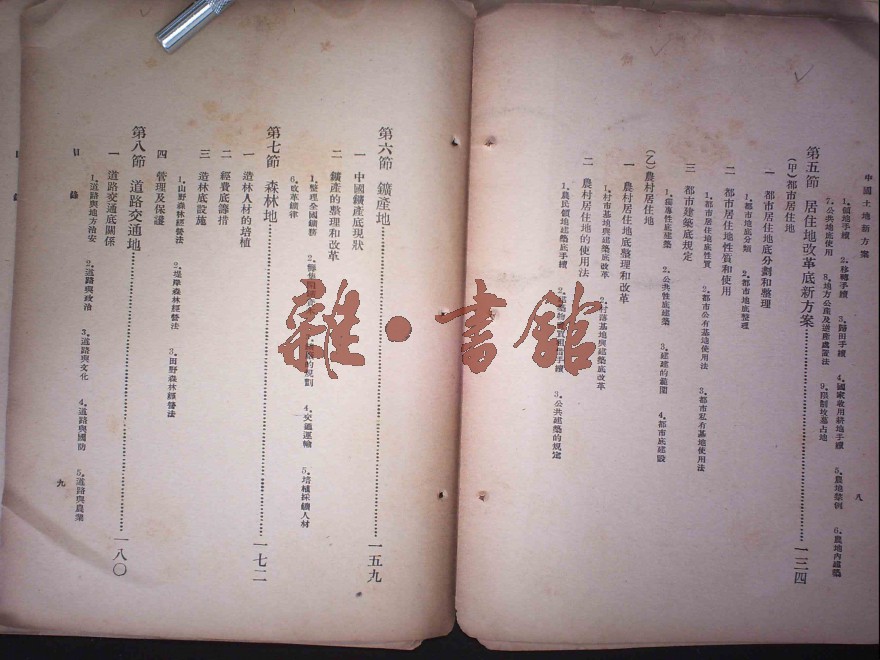 中國土地新方案
八
1.領地手續 2.移轉手續 3.歸田手續 4.國家收用耕地手續 5.農地禁例 6.農地內建築
7.公共地底使用 8.地方公產及遺產處置法 9.限制墳墓占地
第五節 居住地改革底新方案……一三四
(甲)都市居住地
一 都市居住地底分劃和整理
1.都市地底分類 2.都市地底整理
二 都市居住地性質和使用
1.都市居住地底性質 2.都市公有基地使用法 3.都市私有基地使用法
三 都市建築底規定
1.獨專性底建築 2.公共性底建築 3.建築的範圍 4.都市底建設
(乙)農村居住地
一 農村居住地底整理和改革
1.村市基地與建築底改革 2.村落基地與建築底改革
二 農村居住地的使用法
1.農民領地建築底手續 手續 3.公共建築的規定
第六節 鑛產地……一五九
一 中國鑛產底現狀
二 鑛產的整理和改革
1.整理全國鑛務 2. 的規劃 4.交通運輸 5.培植採鑛人材
6.改革鑛律
第七節 森林地……一七二
一 造林人材的培植
二 經費底籌措
三 造林底設施
四 管理及保護
1.山野森林經營法 2.堤岸森林經營法 3.田野森林經營法
第八節 道路交通地……一八〇
一 道路交通底關係
1.道路與地方治安 2.道路與政治 3.道路與文化 4.道路與國防 5.道路與農業
目錄
九
雜·書館